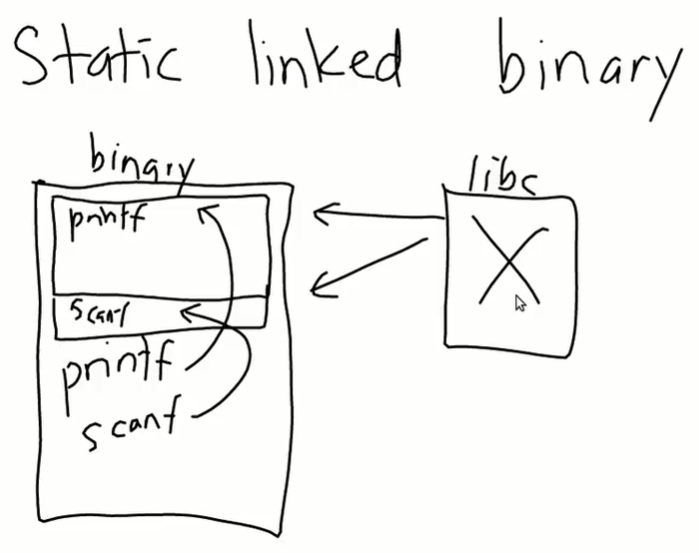 Static linked binary
binary
libc
printf
scanf
printf
scanf